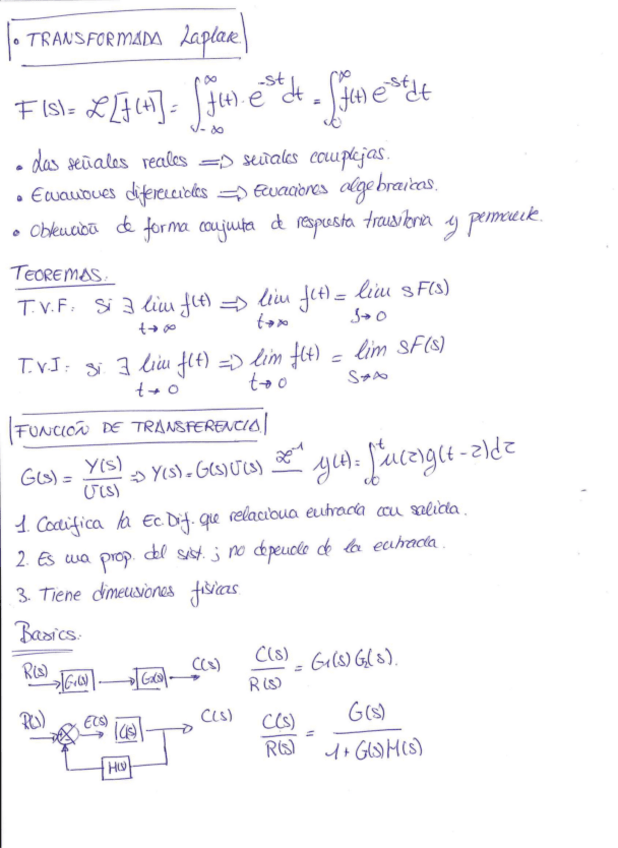 • TRANSFORMADA Laplace
F(s) = ℒ[f(t)] = ∫_{-∞}^{∞} f(t) · e^{-st} dt = ∫_{0}^{∞} f(t) e^{-st} dt
• Las señales reales ⇒ señales complejas.
• Ecuaciones diferenciales ⇒ Ecuaciones algebraicas.
• Obtención de forma conjunta de respuesta transitoria y permanente.
TEOREMAS.
T.V.F: Si ∃ lim_{t→∞} f(t) ⇒ lim_{t→∞} f(t) = lim_{s→0} sF(s)
T.V.I: Si ∃ lim_{t→0} f(t) ⇒ lim_{t→0} f(t) = lim_{s→∞} sF(s)
FUNCIÓN DE TRANSFERENCIA
G(s) = Y(s)/U(s) ⇒ Y(s) = G(s)U(s) ℒ^{-1} y(t) = ∫_{0}^{t} u(z)g(t-z)dz
1. Codifica la Ec.Dif. que relaciona entrada con salida.
2. Es una prop. del sist.; no depende de la entrada.
3. Tiene dimensiones físicas
Basics.
R(s) G1(s) G2(s) C(s) C(s)/R(s) = G1(s)G2(s).
R(s) E(s) G(s) C(s) C(s)/R(s) = G(s)/(1+G(s)H(s))
H(s)